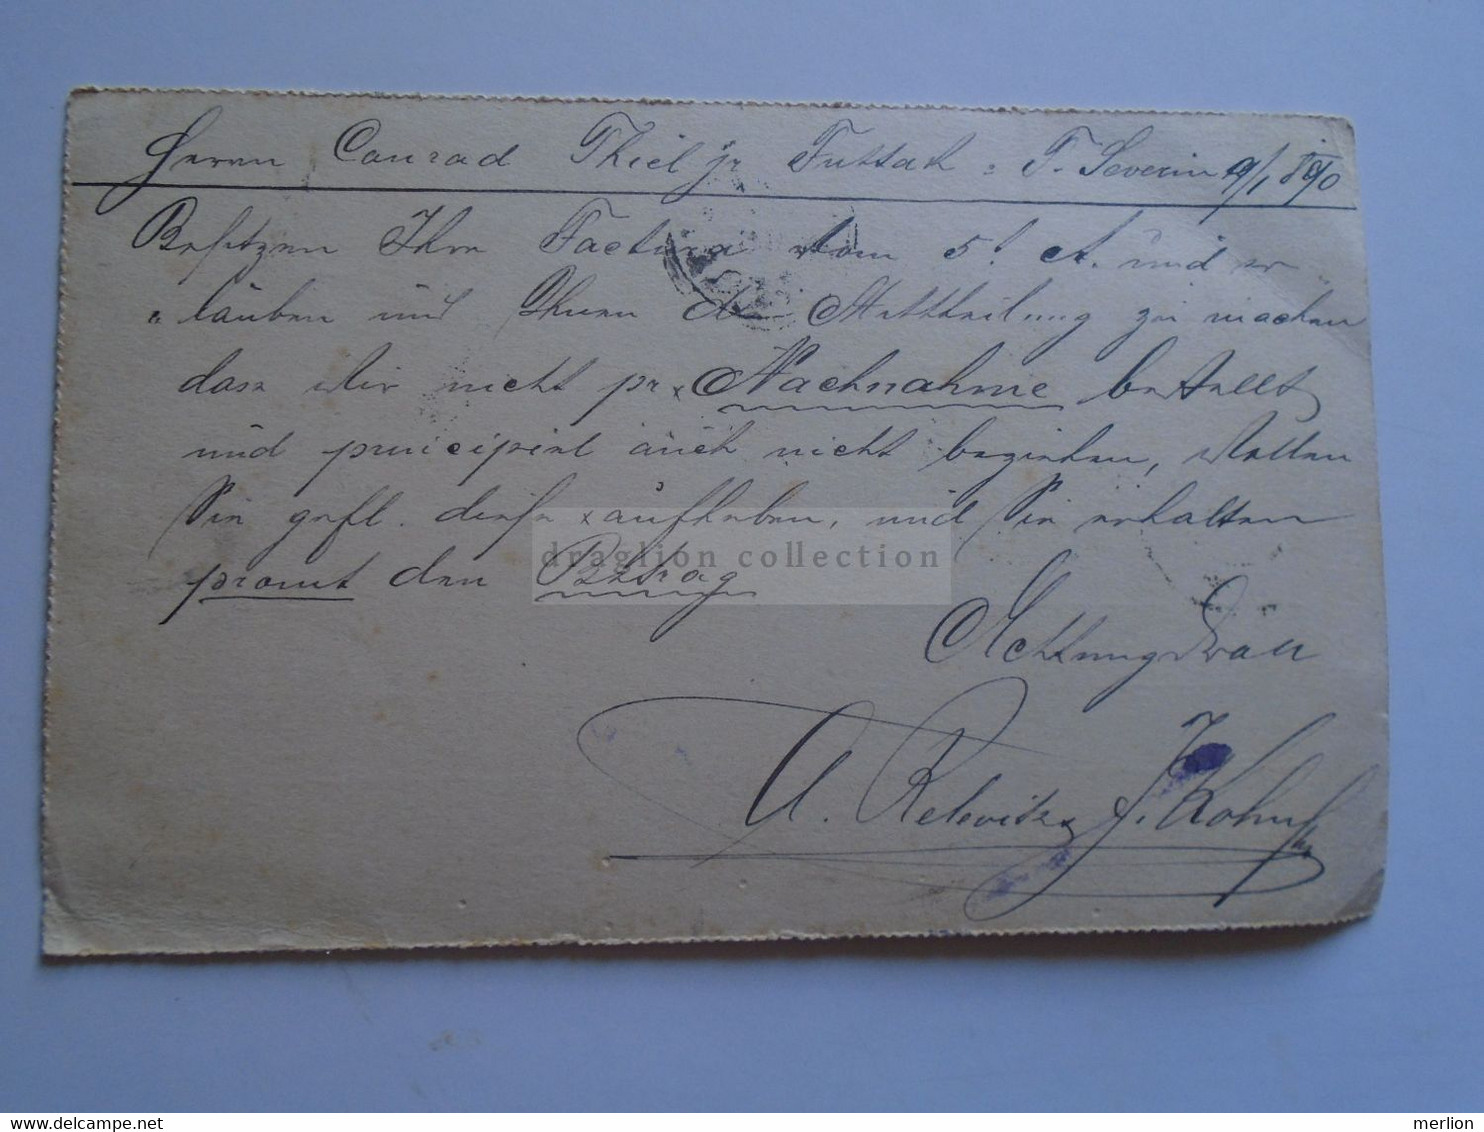 Herrn Conrad Thiel jr Futtak = T. Severin 9/1 890
Besitzen Ihre Factura vom 5! ct. und er
" lauben uns Ihnen die Mittheilung zu machen
dass wir nicht pr x Nachnahme bestellt
und principiel auch nicht beziehen, wollen
Sie gefl. diese x aufheben, und Sie erhalten
promt den Betrag
Achtungsvoll
J. Kohn
draglion collection